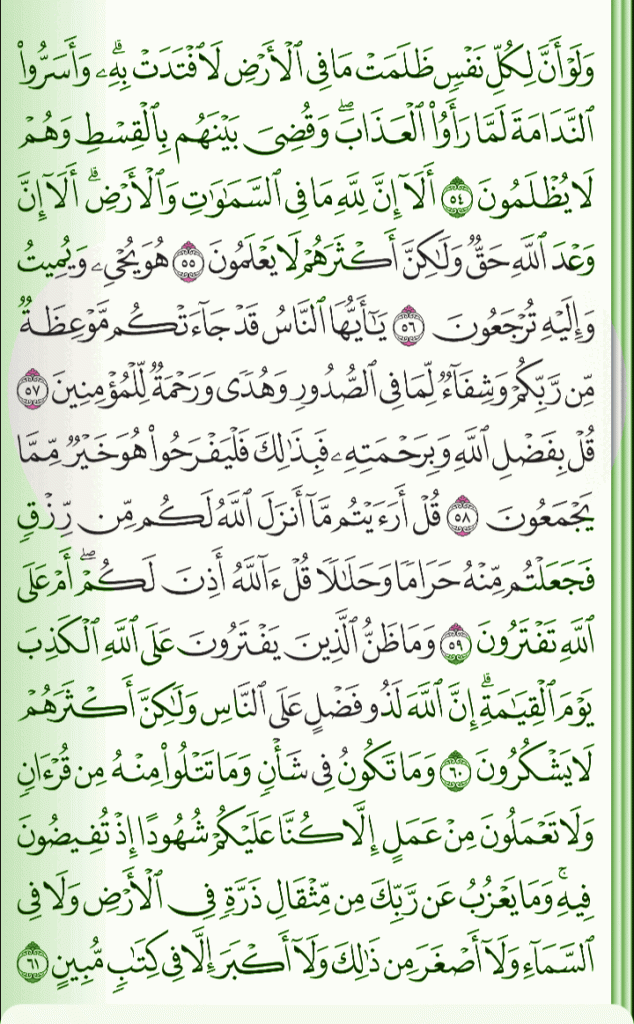 وَلَوْ أَنَّ لِكُلِّ نَفْسٍ ظَلَمَتْ مَا فِي ٱلْأَرْضِ لَٱفْتَدَتْ بِهِۦۗ وَأَسَرُّوا۟
ٱلنَّدَامَةَ لَمَّا رَأَوُا۟ ٱلْعَذَابَۖ وَقُضِيَ بَيْنَهُم بِٱلْقِسْطِ وَهُمْ
لَا يُظْلَمُونَ ٥٤ أَلَآ إِنَّ لِلَّهِ مَا فِي ٱلسَّمَٰوَٰتِ وَٱلْأَرْضِۗ أَلَآ إِنَّ
وَعْدَ ٱللَّهِ حَقٌّ وَلَٰكِنَّ أَكْثَرَهُمْ لَا يَعْلَمُونَ ٥٥ هُوَ يُحْيِۦ وَيُمِيتُ
وَإِلَيْهِ تُرْجَعُونَ ٥٦ يَٰٓأَيُّهَا ٱلنَّاسُ قَدْ جَآءَتْكُم مَّوْعِظَةٌ
مِّن رَّبِّكُمْ وَشِفَآءٌ لِّمَا فِي ٱلصُّدُورِ وَهُدًى وَرَحْمَةٌ لِّلْمُؤْمِنِينَ ٥٧
قُلْ بِفَضْلِ ٱللَّهِ وَبِرَحْمَتِهِۦ فَبِذَٰلِكَ فَلْيَفْرَحُوا۟ هُوَ خَيْرٌ مِّمَّا
يَجْمَعُونَ ٥٨ قُلْ أَرَءَيْتُم مَّآ أَنزَلَ ٱللَّهُ لَكُم مِّن رِّزْقٍ
فَجَعَلْتُم مِّنْهُ حَرَامًا وَحَلَٰلًا قُلْ ءَآللَّهُ أَذِنَ لَكُمْۖ أَمْ عَلَى
ٱللَّهِ تَفْتَرُونَ ٥٩ وَمَا ظَنُّ ٱلَّذِينَ يَفْتَرُونَ عَلَى ٱللَّهِ ٱلْكَذِبَ
يَوْمَ ٱلْقِيَٰمَةِۗ إِنَّ ٱللَّهَ لَذُو فَضْلٍ عَلَى ٱلنَّاسِ وَلَٰكِنَّ أَكْثَرَهُمْ
لَا يَشْكُرُونَ ٦٠ وَمَا تَكُونُ فِي شَأْنٍ وَمَا تَتْلُوا۟ مِنْهُ مِن قُرْءَانٍ
وَلَا تَعْمَلُونَ مِنْ عَمَلٍ إِلَّا كُنَّا عَلَيْكُمْ شُهُودًا إِذْ تُفِيضُونَ
فِيهِۚ وَمَا يَعْزُبُ عَن رَّبِّكَ مِن مِّثْقَالِ ذَرَّةٍ فِي ٱلْأَرْضِ وَلَا فِي
ٱلسَّمَآءِ وَلَآ أَصْغَرَ مِن ذَٰلِكَ وَلَآ أَكْبَرَ إِلَّا فِي كِتَٰبٍ مُّبِينٍ ٦١